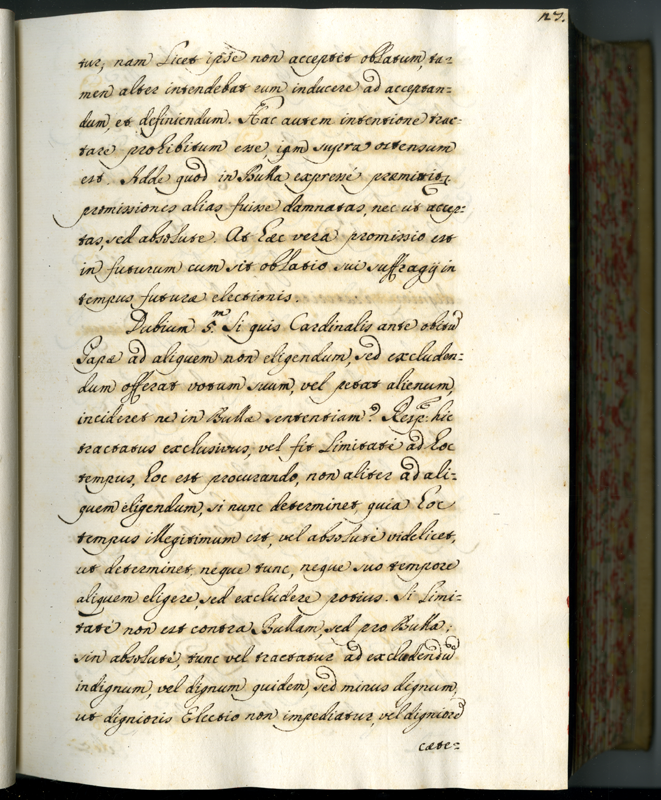 27.
tur; nam licet ipse non acceptet oblatum, ta-
men alter intendebat eum inducere ad acceptan-
dum, et definiendum. Hac autem intentione trac-
tare prohibitum esse iam supra ostensum
est. Adde quod in Bulla expressè
promissiones alias fuisse damnatas, nec ut accep-
tas, sed absolute. At haec vera promissio est
in futurum cum sit oblatio sui suffragij in
tempus futurae electionis.
Dubium 5.m Si quis Cardinalis ante obitū
Papae ad aliquem non eligendum, sed excluden-
dum offerat votum suum, vel petat alienum,
incideret ne in Bullae sententiam? Resp. hic
tractatus exclusivus, vel fit limitatè ad hoc
tempus, hoc est procurando, non aliter ad ali-
quem eligendum, si nunc determinet, quia hoc
tempus illegitimum est, vel absolutè videlicet,
ut determinet, neque tunc, neque suo tempore
aliquem eligere, sed excludere potius. Si limi-
tatè non est contra Bullam, sed pro Bulla:
sin absolutè, tunc vel tractatur ad excludendū
indignum, vel dignum quidem, sed minus dignum,
ut dignioris Electio non impediatur, vel digniorē
caete-